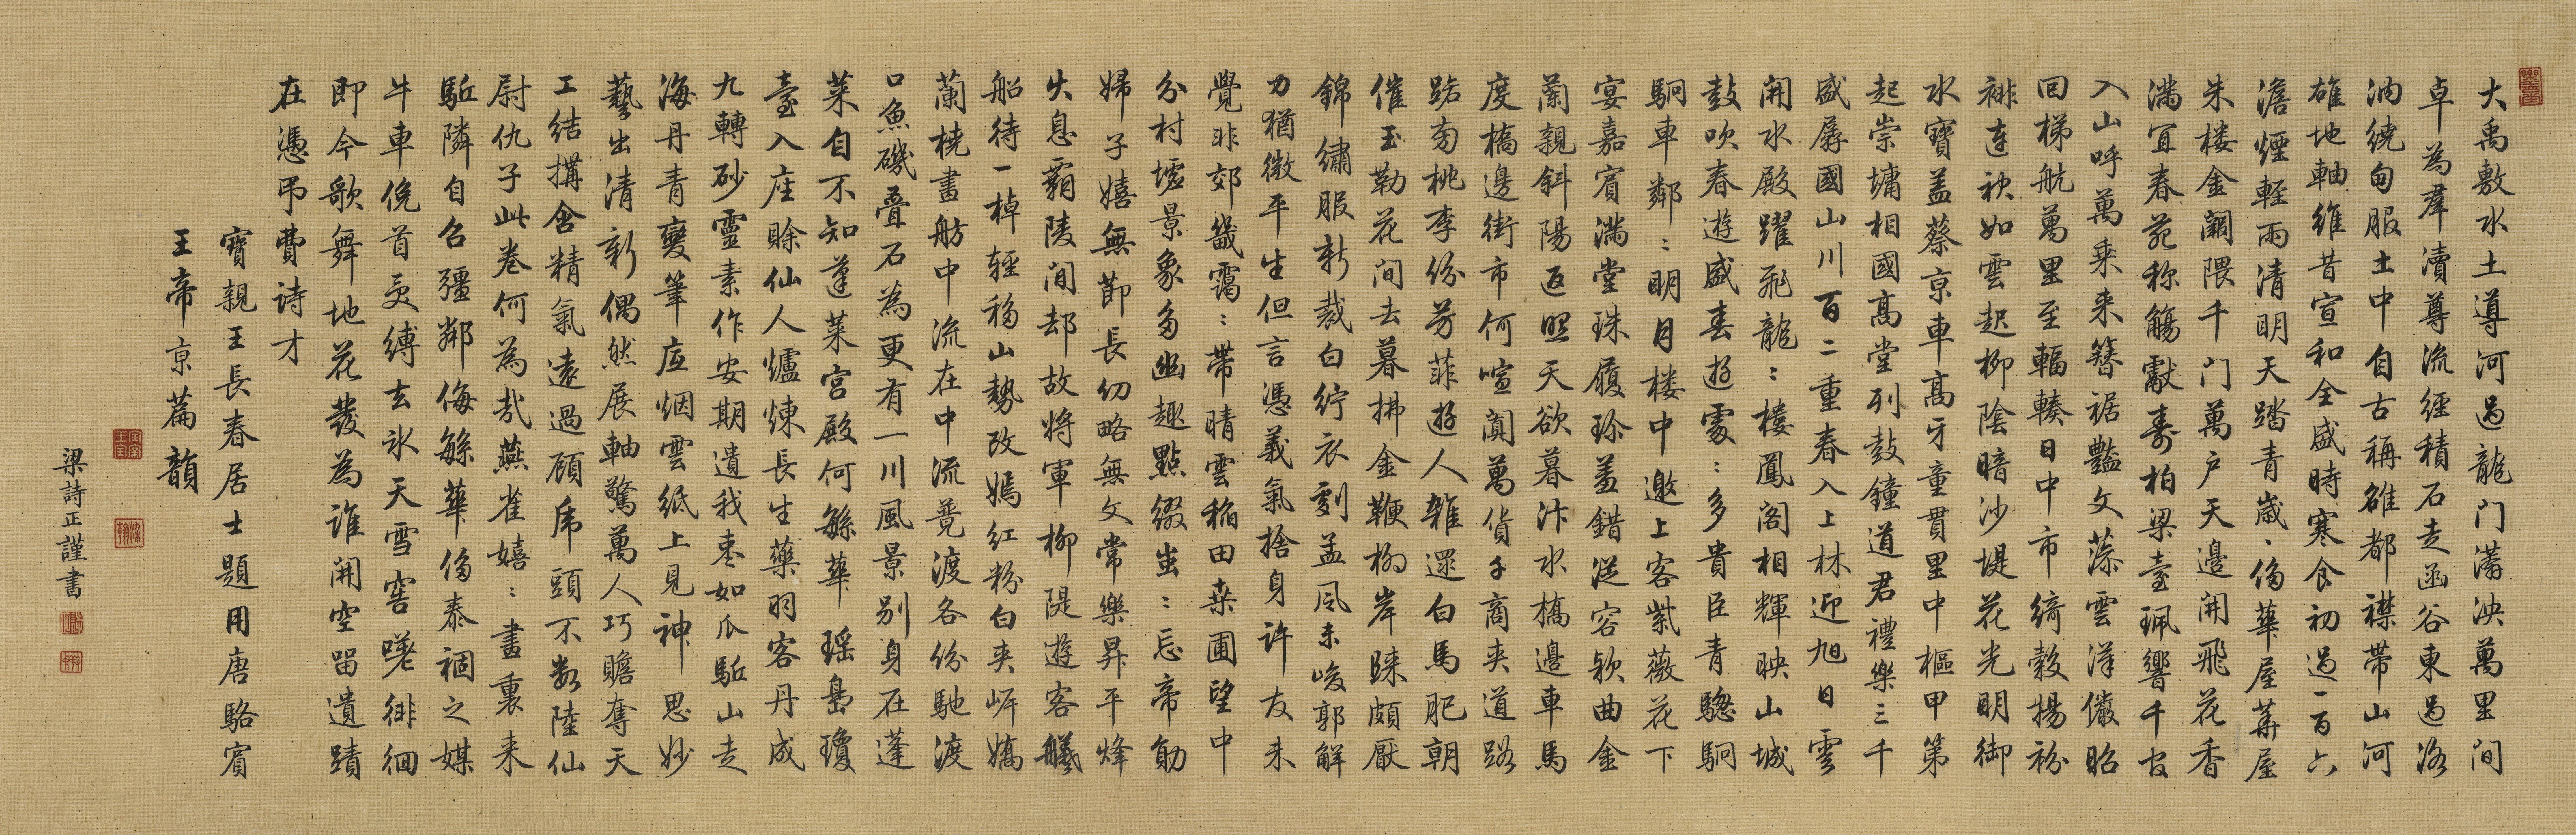 大禹敷水土導河過龍門滿泱萬里間
卓為羣瀆尊流經積石走函谷東過洛
汭繞甸服土中自古稱雄都襟帶山河
雄地軸維昔宣和全盛時寒食初過一百六
澹煙輕雨清明天踏青歲侈華屋葺屋
朱樓金闕隈千門萬戶天邊開飛花香
滿宜春苑稱觴獻壽柏梁臺珮響千官
入山呼萬乘來簪裾豔文藻雲漢儼昭
回梯航萬里至輻輳日中市綺縠揚衯
裶連袂如雲起柳陰暗沙堤花光明御
水寶蓋蔡京車高牙童貫里中樞甲第
起崇墉相國高堂列鼓鐘道君禮樂三千
盛孱國山川百二重春入上林迎旭日雲
開水殿躍飛龍ː樓鳳閣相輝映山城
鼓吹春遊盛春遊處ː多貴臣青驄駉
駉車鄰ː明月樓中邀上客紫薇花下
宴嘉賓滿堂珠履珍羞錯從容欵曲金
蘭親斜陽返照天欲暮汴水橋邊車馬
度橋邊街市何喧闐萬貨千商夾道路
路旁桃李份芳菲遊人雜還白馬肥朝
催玉勒花間去暮拂金鞭柳岸歸頗厭
錦繡服新裁白紵衣劇孟風未峻郭解
力猶微平生但言憑義氣捨身許友未
覺非郊畿靄ː帶晴雲稻田桒圃望中
分村墟景象多幽趣點綴蚩ː忘帝勛
婦子嬉無節長幼略無文常樂昇平烽
火息霸陵間却故將軍柳隄遊客艤
船待一棹輕移山勢改嫣紅粉白夾岍嬌
蘭橈畫舫中流在中流競渡各份馳渡
口魚磯疊石為更有一川風景別身在蓬
萊自不知蓬萊宮殿何緐華瑤島瓊
臺入座賒仙人爐煉長生藥羽客丹成
九轉砂靈素作安期遺我棗如瓜駈山走
海丹青變筆底烟雲紙上見神思妙
藝出清新偶然展軸驚萬人巧贍奪天
工結搆含精氣遠過顧虎頭不數陸仙
尉仇子此卷何為哉燕雀嬉ː畫裏来
駈隣自召彊鄰侮緐華侈泰禍之媒
牛車俛首受縛去氷天雪窖嘆徘徊
即今歌舞地花發為誰開空留遺蹟
在憑弔費詩才
寶親王長春居士題用唐駱賓
王帝京篇韻
梁詩正謹書